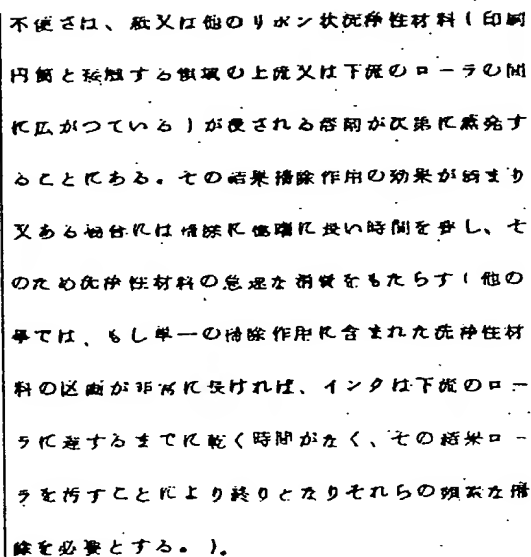 不便さは、紙又は他のリボン状洗浄性材料(印刷
円筒と接触する領域の上流又は下流のローラの間
に広がつている)が浸される溶剤が次第に蒸発す
ることにある。その結果掃除作用の効果が弱まり
又ある場合には掃除に極端に長い時間を要し、そ
のため洗浄性材料の急速な消費をもたらす(他の
事では、もし単一の掃除作用に含まれた洗浄性材
料の区画が非常に長ければ、インクは下流のロー
ラに達するまでに乾く時間がなく、その結果ロー
ラを汚すことにより終りとなりそれらの頻繁な掃
除を必要とする。)。